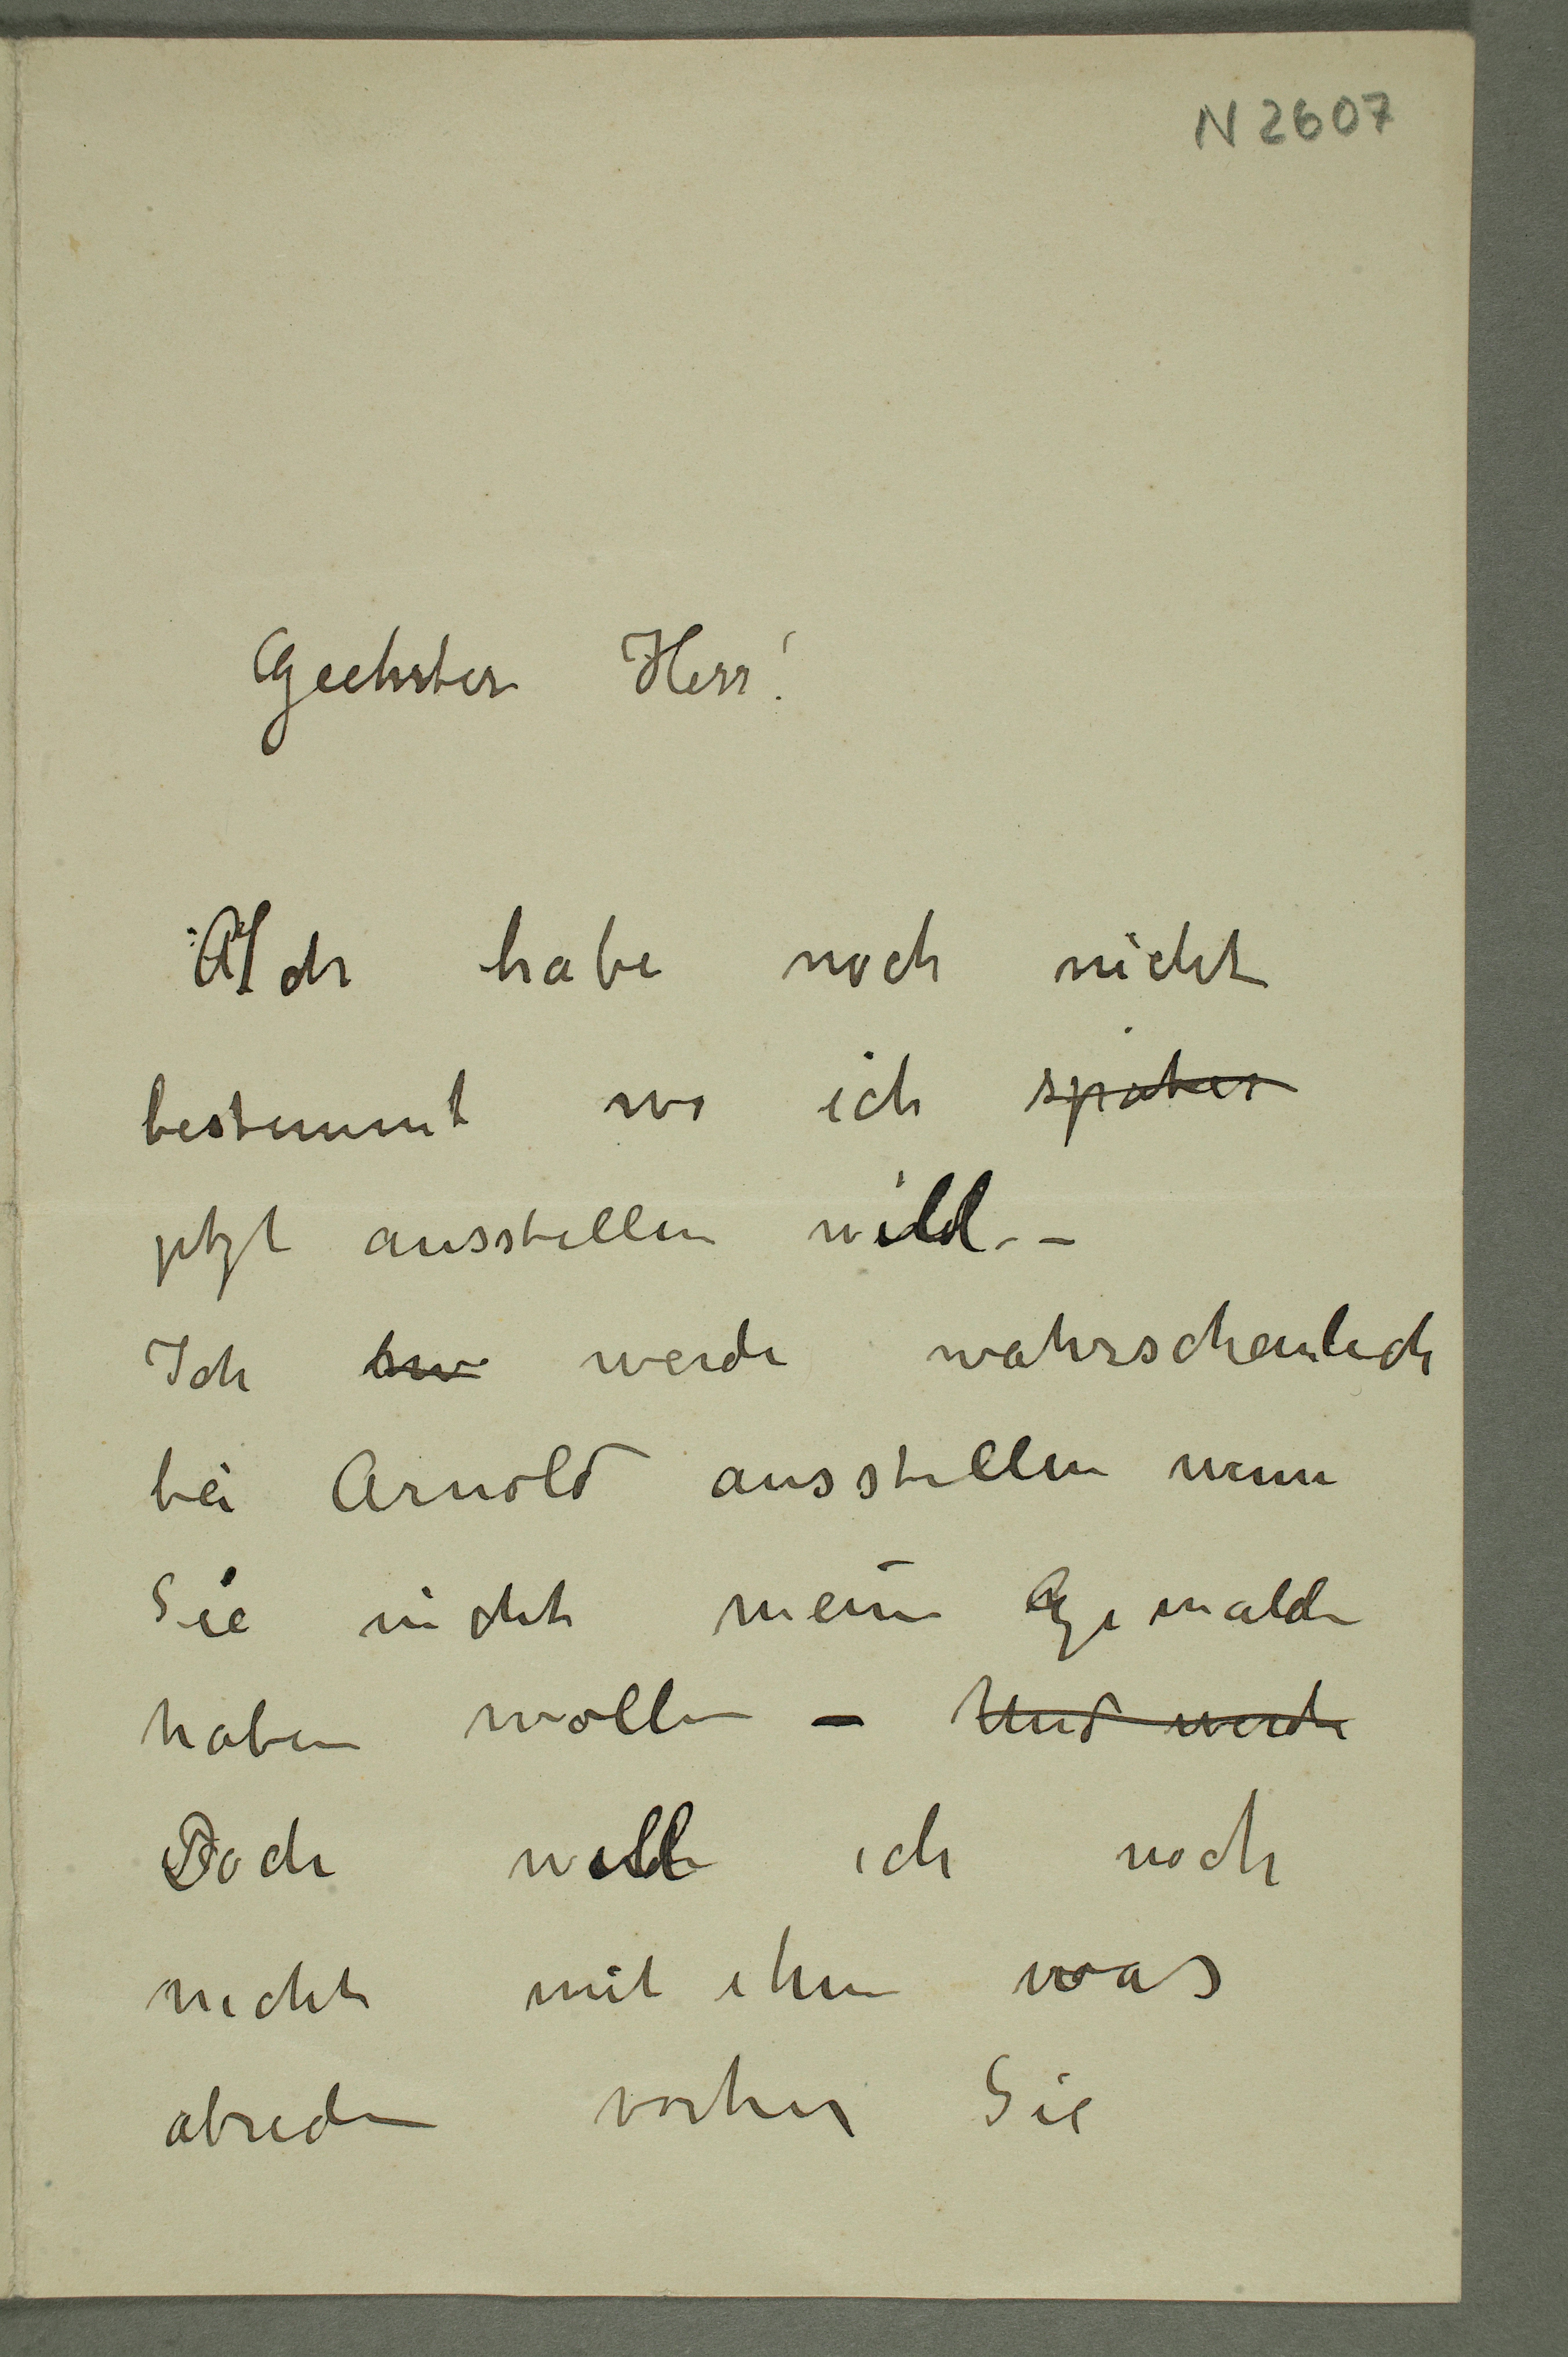 N 2607
Geehrter Herr!
Ich habe noch nicht
bestemmt wo ich später
jetzt ausstellen will. –
Ich werde wahrscheinlich
bei Arnold ausstellen wenn
Sie nicht meine Gemalde
haben wollen – Und werde
Doch will ich noch
nicht mit ihm was
abreden vorher Sie